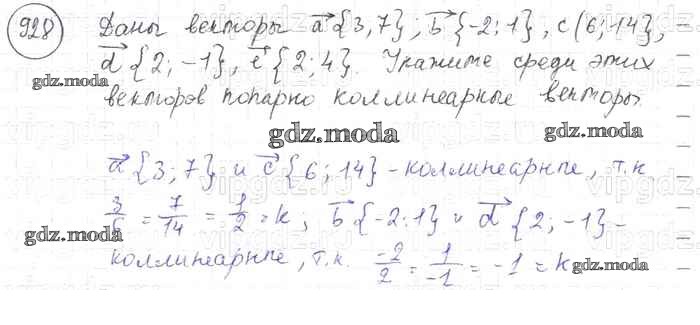 928 Даны векторы a{3,7}; b{-2;1}, c(6;14},
d{2;-1}, e{2;4}. Укажите среди этих
gdz.moda
векторов попарно коллинеарные векторы.
gdz.moda
gdz.moda
a{3;7} и c{6;14} - коллинеарные, т.к
3/6 = 7/14 = 1/2 = k; b{-2;1} и d{2;-1} -
gdz.moda
коллинеарные, т.к. -2/2 = 1/-1 = -1 = k
gdz.moda